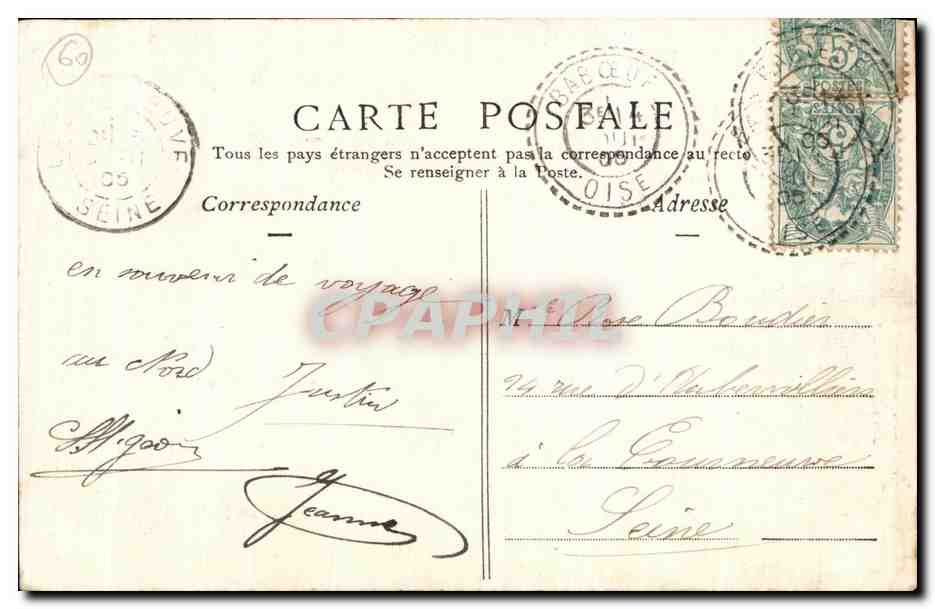 60
CARTE POSTALE
Tous les pays étrangers n'acceptent pas la correspondance au recto
Se renseigner à la Poste.
Correspondance
Adresse
en souvenir de voyage
au Nord
Justin
Jeanne
Mlle Rose Boudier
24 rue d'Aubervilliers
à la Courneuve
Seine
BABŒUF
05
OISE
05
SEINE
5
POSTES
5
CPAPHIL